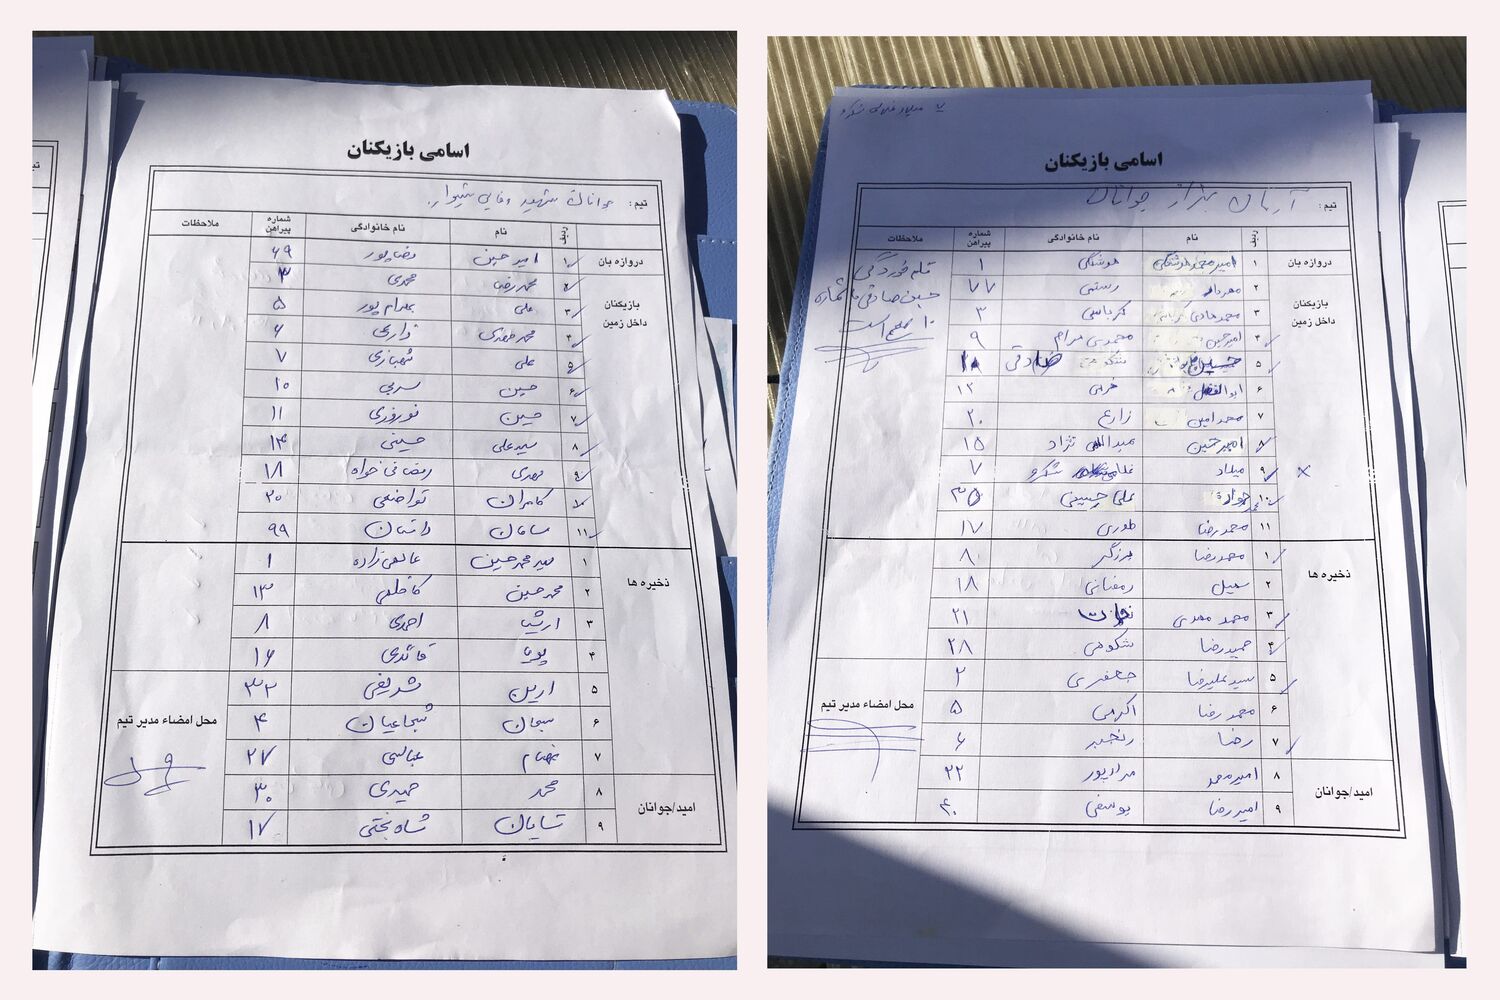 اسامی بازیکنان
تیم : جوانان شهید وفایی شیراز
ردیف نام نام خانوادگی شماره پیراهن ملاحظات
دروازه بان ۱ امیرحسین رضاپور ۶۹
بازیکنان داخل زمین
۲ محمدرضا محمدی ۳
۳ علی بهرام پور ۵
۴ محمدمهدی زارعی ۶
۵ علی شهبازی ۷
۶ حسین سربی ۱۰
۷ حسین نوروزی ۱۱
۸ سیدعلی حسینی ۱۴
۹ مهدی رمضانی خواه ۱۸
۱۰ کامران تواضعی ۲۰
۱۱ سامان داستان ۹۹
ذخیره ها
۱ سیدمحمدحسین عالمی زاده ۱
۲ محمدحسین کاظمی ۱۳
۳ ارشیا احمدی ۸
۴ پویا قائدی ۱۶
۵ آرین شریفی ۳۳
۶ سبحان شجاعیان ۴
۷ عباسی ۲۷
امید/جوانان
۸ محمد حمیدی ۳۰
۹ شایان شاه بختی ۱۷
محل امضاء مدیر تیم
۷ میلاد غلامی شکرو
اسامی بازیکنان
تیم : آرمان جوانان
ردیف نام نام خانوادگی شماره پیراهن ملاحظات
دروازه بان ۱ امیرمحمد هوشنگی هوشنگی ۱
بازیکنان داخل زمین
۲ مهرداد رستمی ۷۷
۳ محمدهادی کرباسی ۳
۴ امیرحسین محمدی مرام ۹
۵ صادقی ۱۰
۶ ابوالفضل ۱۲
۷ محمدامین زارع ۲۰
۸ امیرحسین عبدالله نژاد ۱۵
۹ میلاد غلامی شکرو ۷
۱۰ جواد علی حسینی
۱۱ محمدرضا طوری ۱۷
قلم خوردگی
حسین صادقی با شماره
۱۰ صحیح است
ذخیره ها
۱ محمدرضا برزگر ۸۰
۲ سهیل رمضانی ۱۸
۳ محمد مهدی ۲۱
۴ حمیدرضا شکوهی ۲۸
۵ سیدعلیرضا جعفری ۲
۶ محمدرضا اکرمی ۵
۷ رضا رنجبر ۶
امید/جوانان
۸ امیرمحمد مرادپور ۲۲
۹ امیررضا یوسفی ۴۰
محل امضاء مدیر تیم